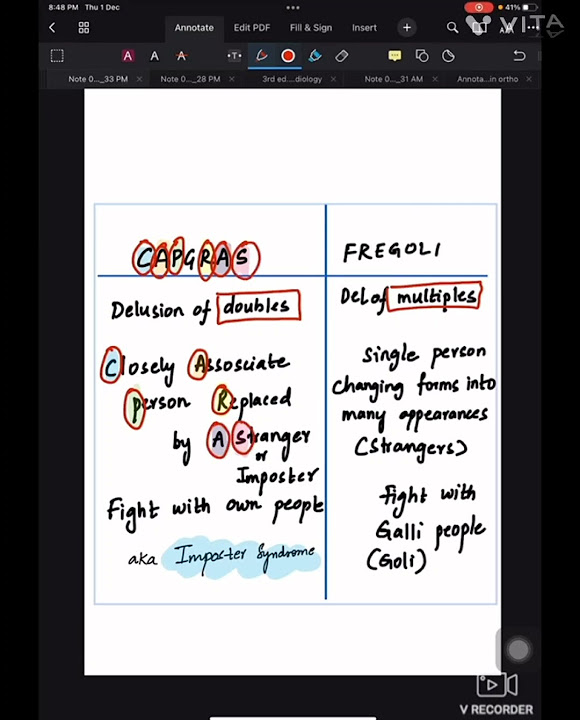 8:48 PM Thu 1 Dec
41%
VITA
Annotate
Edit PDF
Fill & Sign
Insert
A A A T
Note 0..._33 PM
Note 0..._28 PM
3rd ed....diology
Note 0..._31 AM
Annota...in ortho
CAPGRAS
Delusion of doubles
Closely Assosciate
person Replaced
by A Stranger
or
Imposter
Fight with own people
aka Imposter Syndrome
FREGOLI
Del of multiples
Single person
changing forms into
many appearances
(Strangers)
fight with
Galli people
(Goli)
V RECORDER